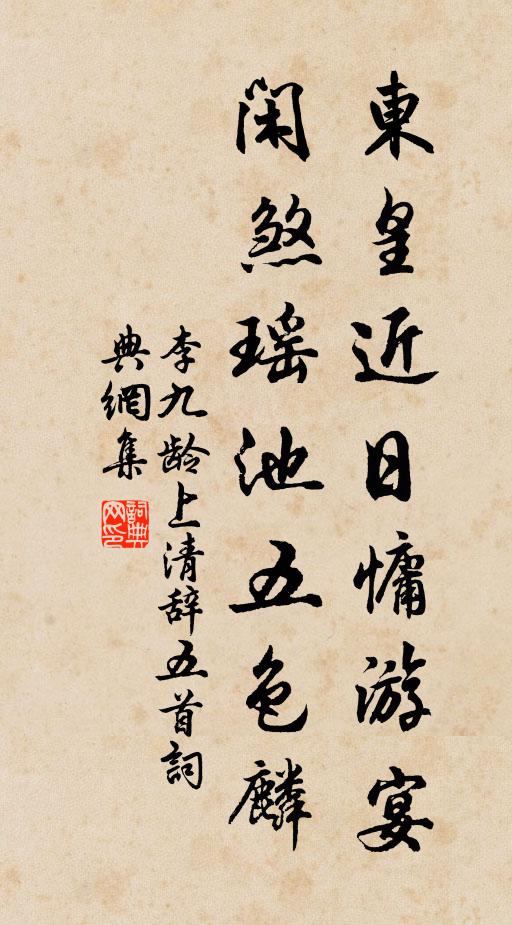 東皇近日慵游宴
閑煞瑶池五色麟
李九龄上清辞五首詞
典網集
詞典
网印